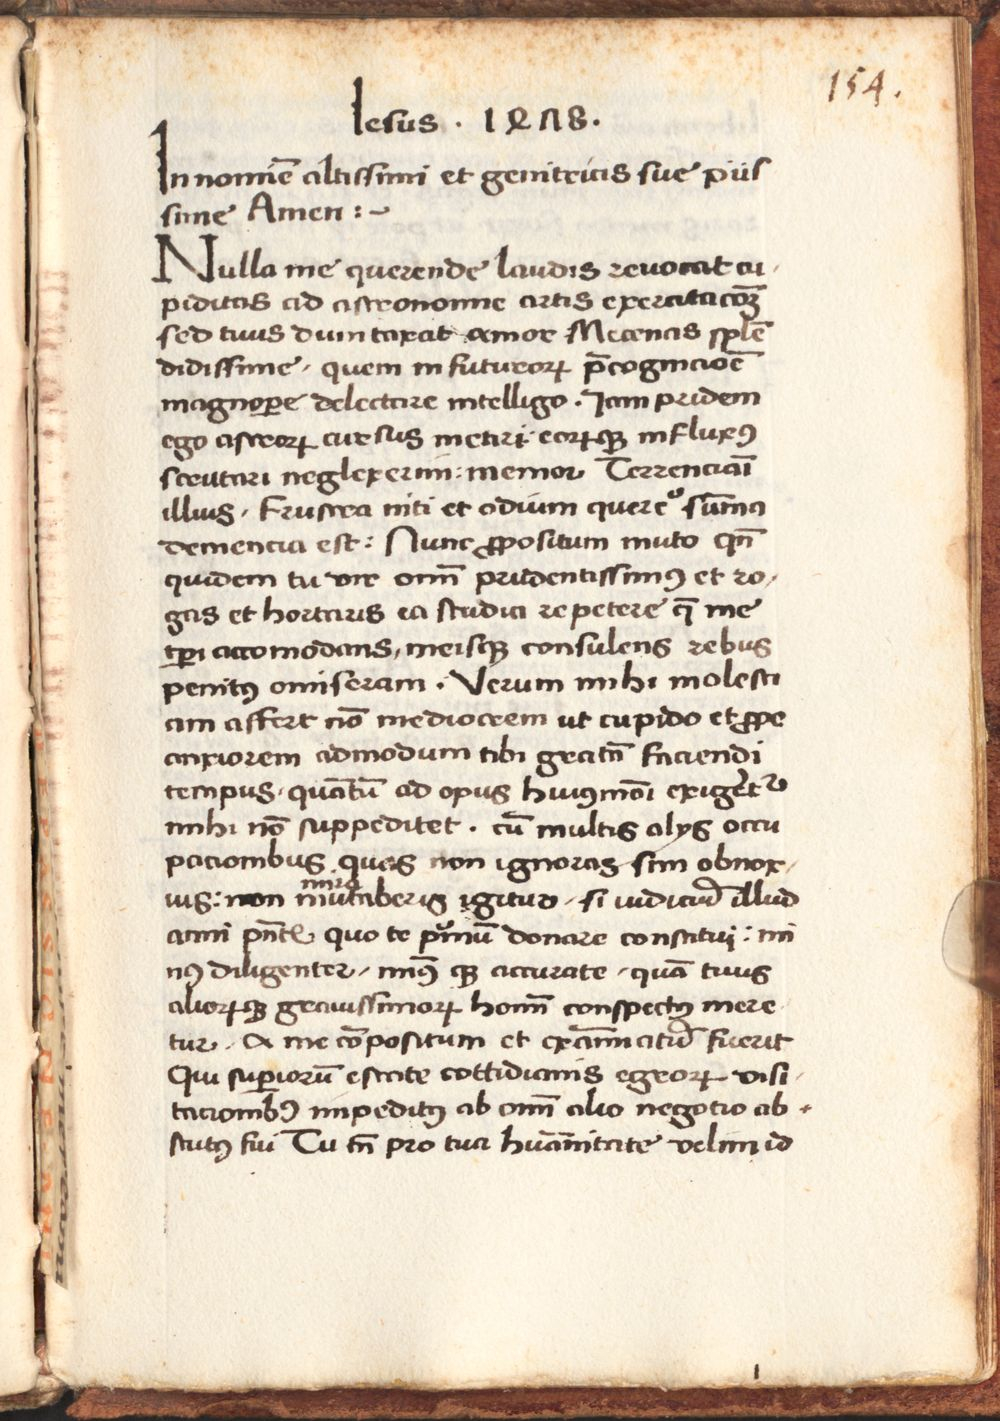 154.
Iesus . 1478 .
In nomīe altissimi et genitricis sue piis
sime Amen :~
Nulla me querende laudis revocat cu
piditas ad astronomie artis exercitacōꝫ
sed tuus dumtaxat amor Mecenas splē
didissime, quem in futuroꝝ p̄cognicioē
magnopere delectare intelligo . Iam pridem
ego astroꝝ cursus metiri : eoꝝqꝫ influxꝰ
scrutari neglexerim : memor Terrenciaī
illius, Frustra niti et odium querē sūma
demencia est : Nunc ꝓpositum muto qn̄
quidem tu vir oim̄ prudentissimꝰ et ro,
gas et hortaris ea studia repetere q̄ me
tꝑi accomodans, meisqꝫ consulens rebus
penitꝰ omiseram . Verum mihi molesti
am affert nō mediocrem ut cupido et ꝓpe
anxiorem admodum tibi gratū faciendi
tempus, quātū ad opus huiusmōi exigeret
mihi nō suppeditet . cū multis alys occu
pacionibus quas non ignoras sim obnox,
ius : non mira
mutaberis igitur, si iudiciū illud
anni p̄ntis quo te p̄mū donare constitui : mi
nꝰ diligenter, minꝰ qꝫ accurate, quā tuus
alioꝝqꝫ gravissimoꝝ homī conspectꝰ mere
tur, A me cōpositum et exāminatū fuerit
Qui superiorū estate cottidianis egroꝝ visi,
tacionibꝰ impeditꝰ ab omī alio negotio ab,
stractꝰ fui Tu tn̄ pro tua huānitate velim id
1